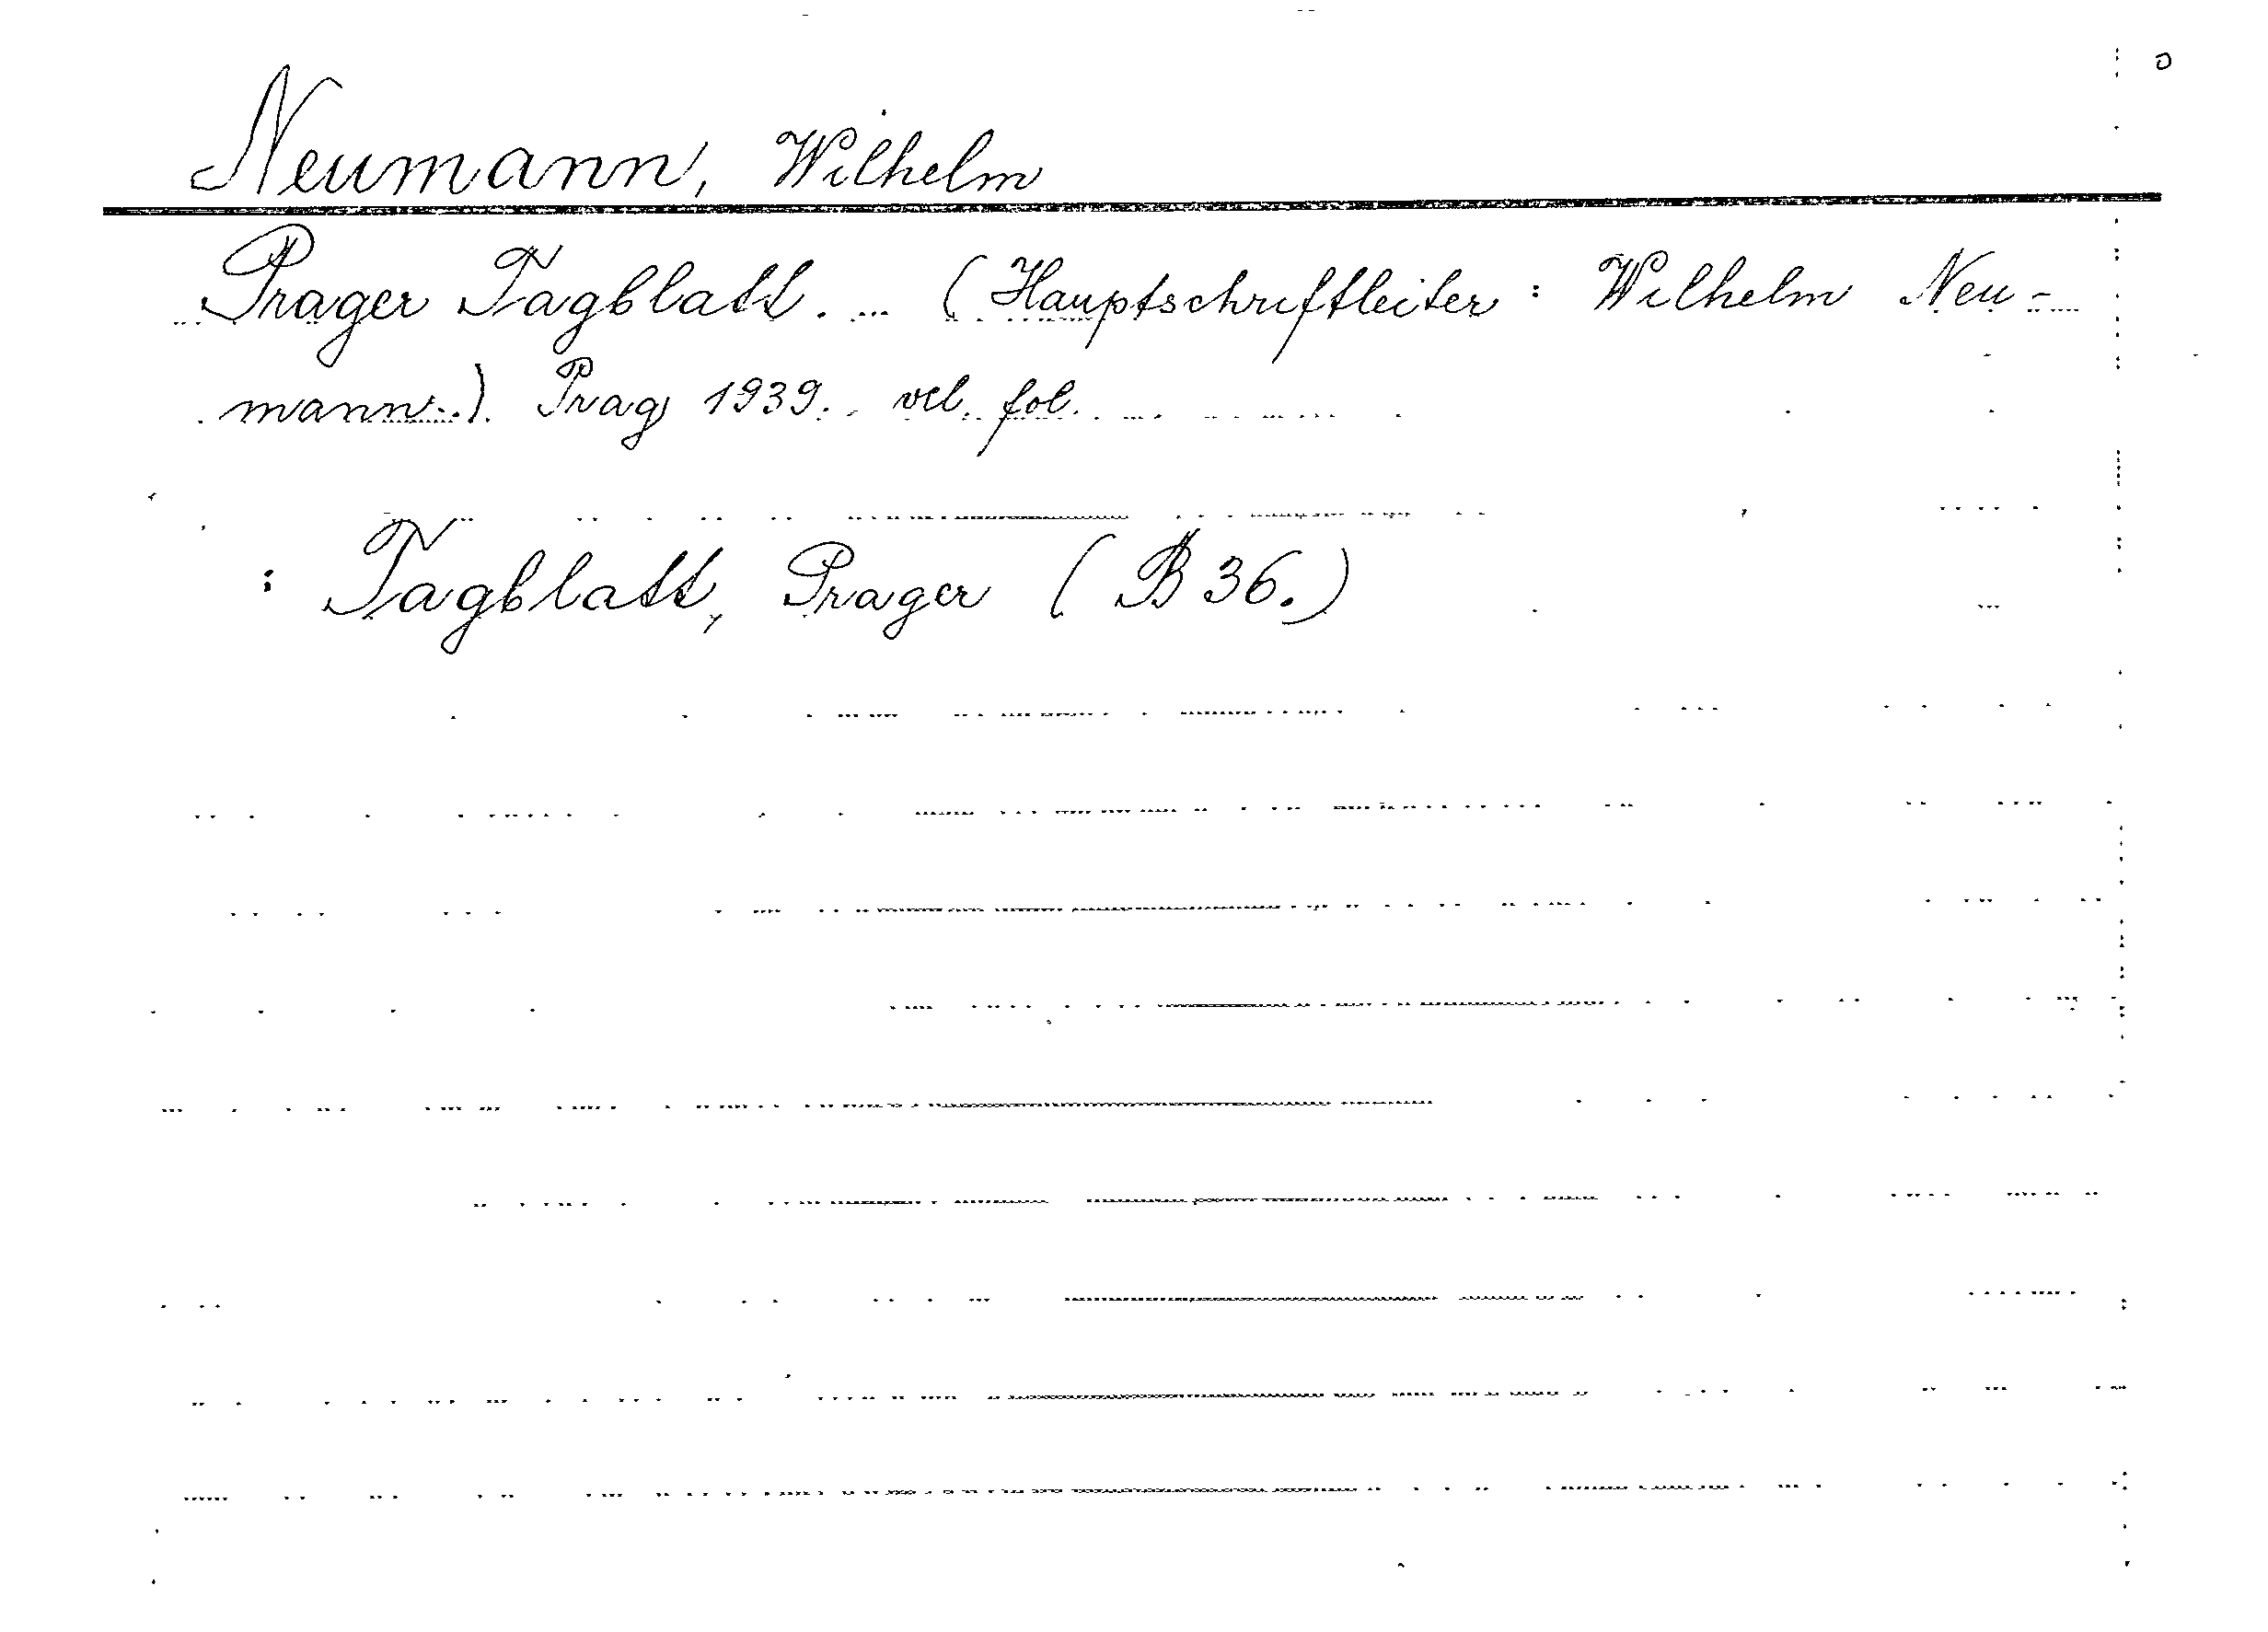 Neumann, Wilhelm
Prager Tagblatt. ... (Hauptschriftleiter: Wilhelm Neu-
mann.) Prag 1939. vel. fol.
: Tagblatt, Prager (B 36.)